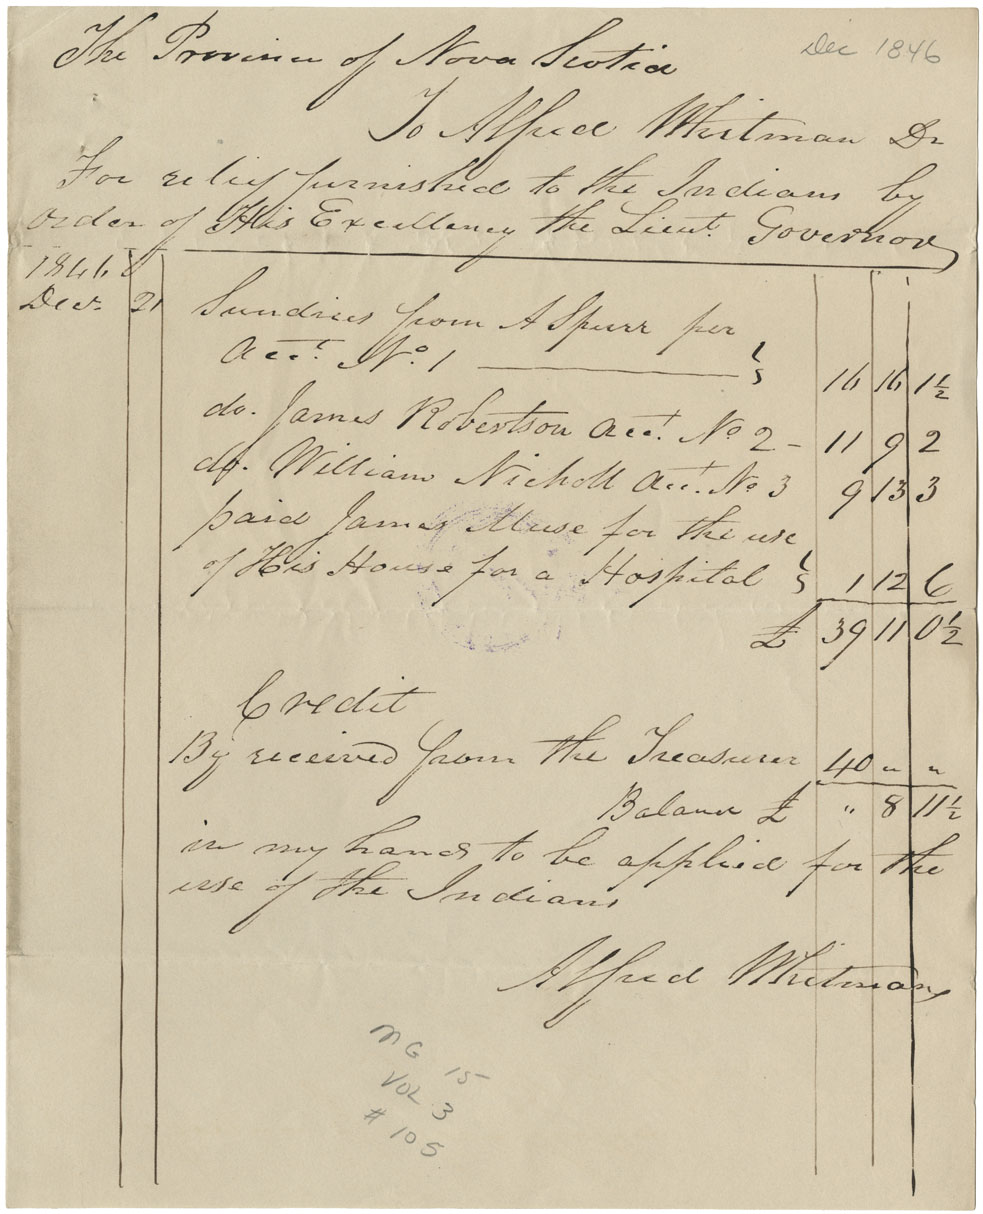 Dec 1846
The Province of Nova Scotia
To Alfred Whitman Dr
For relief furnished to the Indians by
order of His Excellency the Lieut. Governor
1846
Decr. 21 Sundries from A Spurr per
Acct. No. 1 16 16 1½
do. James Robertson Acct. No 2 - 11 9 2
do. William Nicholl Acct. No 3 9 13 3
paid James Muse for the use
of His House for a Hospital 1 12 6
£ 39 11 0½
Credit
By received from the Treasurer 40 " "
Balance £ " 8 11½
in my hands to be applied for the
use of the Indians
Alfred Whitman
MG 15
VOL 3
# 105